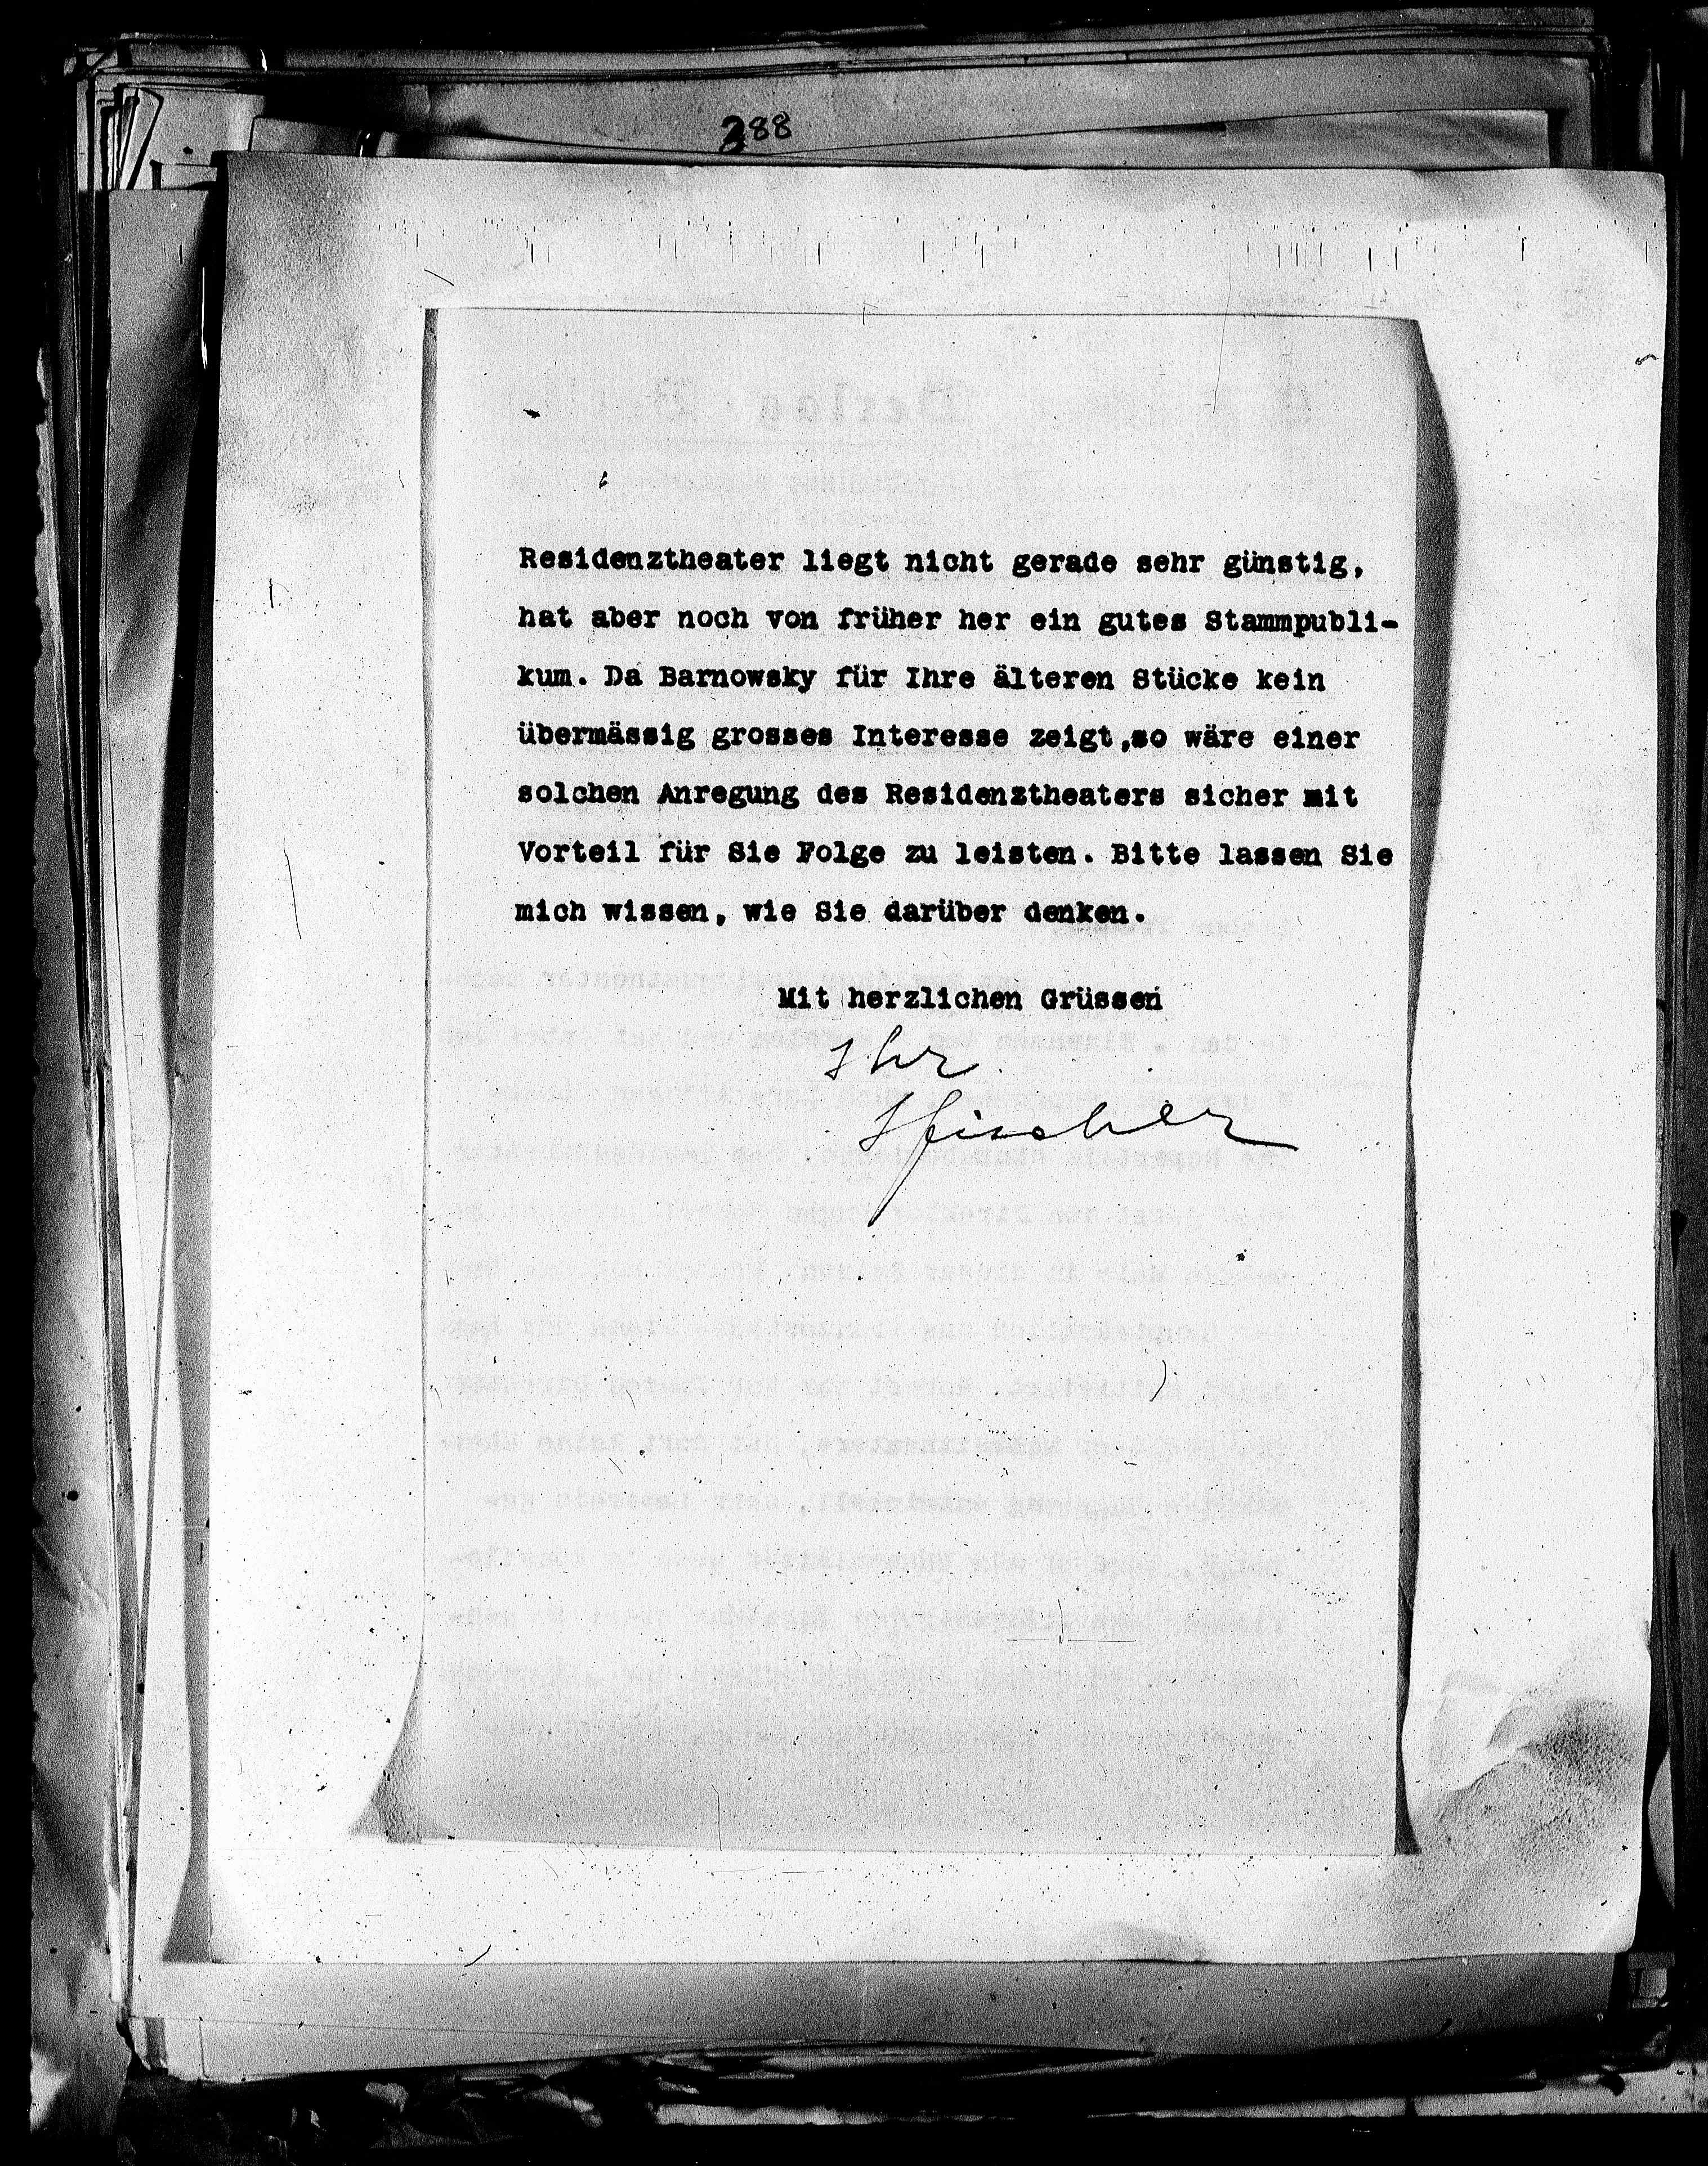 388
Residenztheater liegt nicht gerade sehr günstig,
hat aber noch von früher her ein gutes Stammpubli-
kum. Da Barnowsky für Ihre älteren Stücke kein
übermässig grosses Interesse zeigt,so wäre einer
solchen Anregung des Residenztheaters sicher mit
Vorteil für Sie Folge zu leisten. Bitte lassen Sie
mich wissen, wie Sie darüber denken.
Mit herzlichen Grüssen
Ihr
SFischer